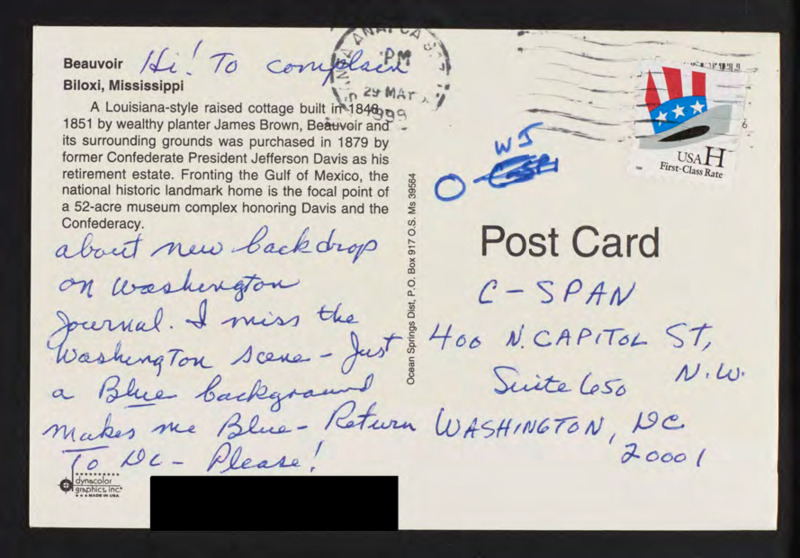 Beauvoir
Biloxi, Mississippi
Hi! To complain
A Louisiana-style raised cottage built in 1848-
1851 by wealthy planter James Brown, Beauvoir and
its surrounding grounds was purchased in 1879 by
former Confederate President Jefferson Davis as his
retirement estate. Fronting the Gulf of Mexico, the
national historic landmark home is the focal point of
a 52-acre museum complex honoring Davis and the
Confederacy.
about new backdrop
on Washington
Journal. I miss the
Washington scene - Just
a Blue background
makes me Blue - Return
To DC - Please!
dynacolor
graphics, inc.
MADE IN USA
Ocean Springs Dist, P.O. Box 917 O.S. Ms 39564
PM
29 MAY
1999
USA H
First-Class Rate
WJ
Post Card
C-SPAN
400 N. CAPITOL ST,
N.W.
Suite 650
WASHINGTON, DC
20001